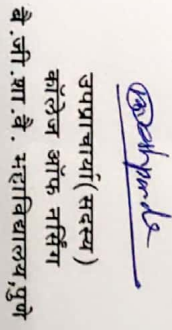 उपप्राचार्या(सदस्य)
कॉलेज ऑफ नर्सिंग
बै.जी.शा.वै. महाविद्यालय,पुणे